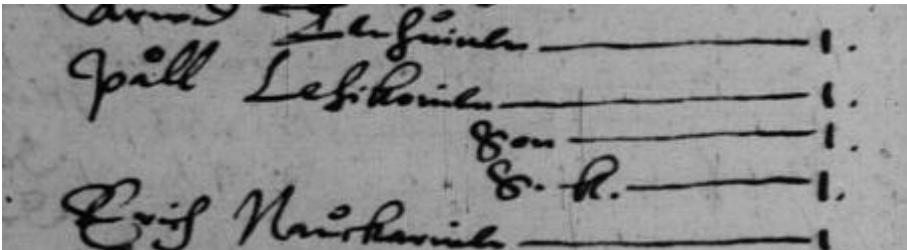 Påll Lesikoinen — 1.
Son — 1.
S. k. — 1.
Erich Nauskarinen — 1